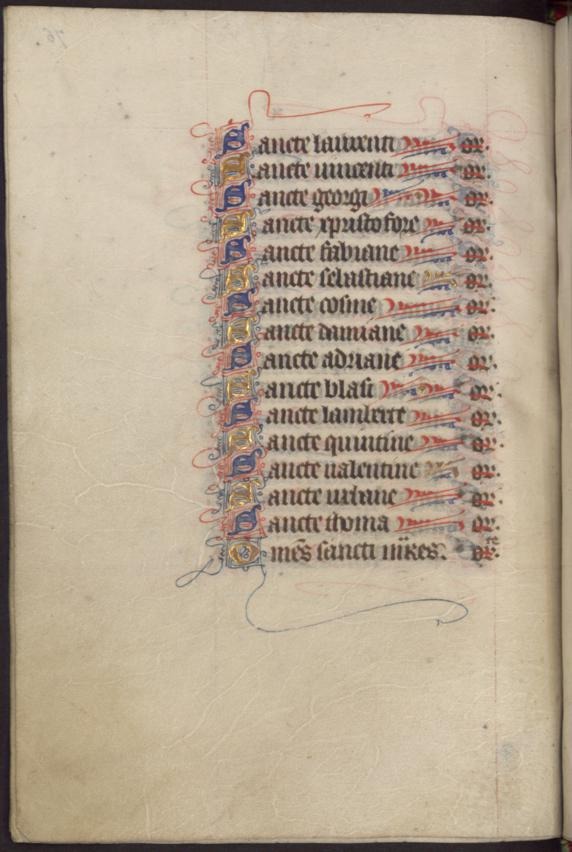 Sancte laurenti or.
Sancte vincenti or.
Sancte georgi or.
Sancte xpristofore or.
Sancte fabiane or.
Sancte sebastiane or.
Sancte cosme or.
Sancte damiane or.
Sancte adriane or.
Sancte blasi or.
Sancte lamberte or.
Sancte quintine or.
Sancte ualentine or.
Sancte urbane or.
Sancte thoma or.
Omēs sancti mr̄es. orte